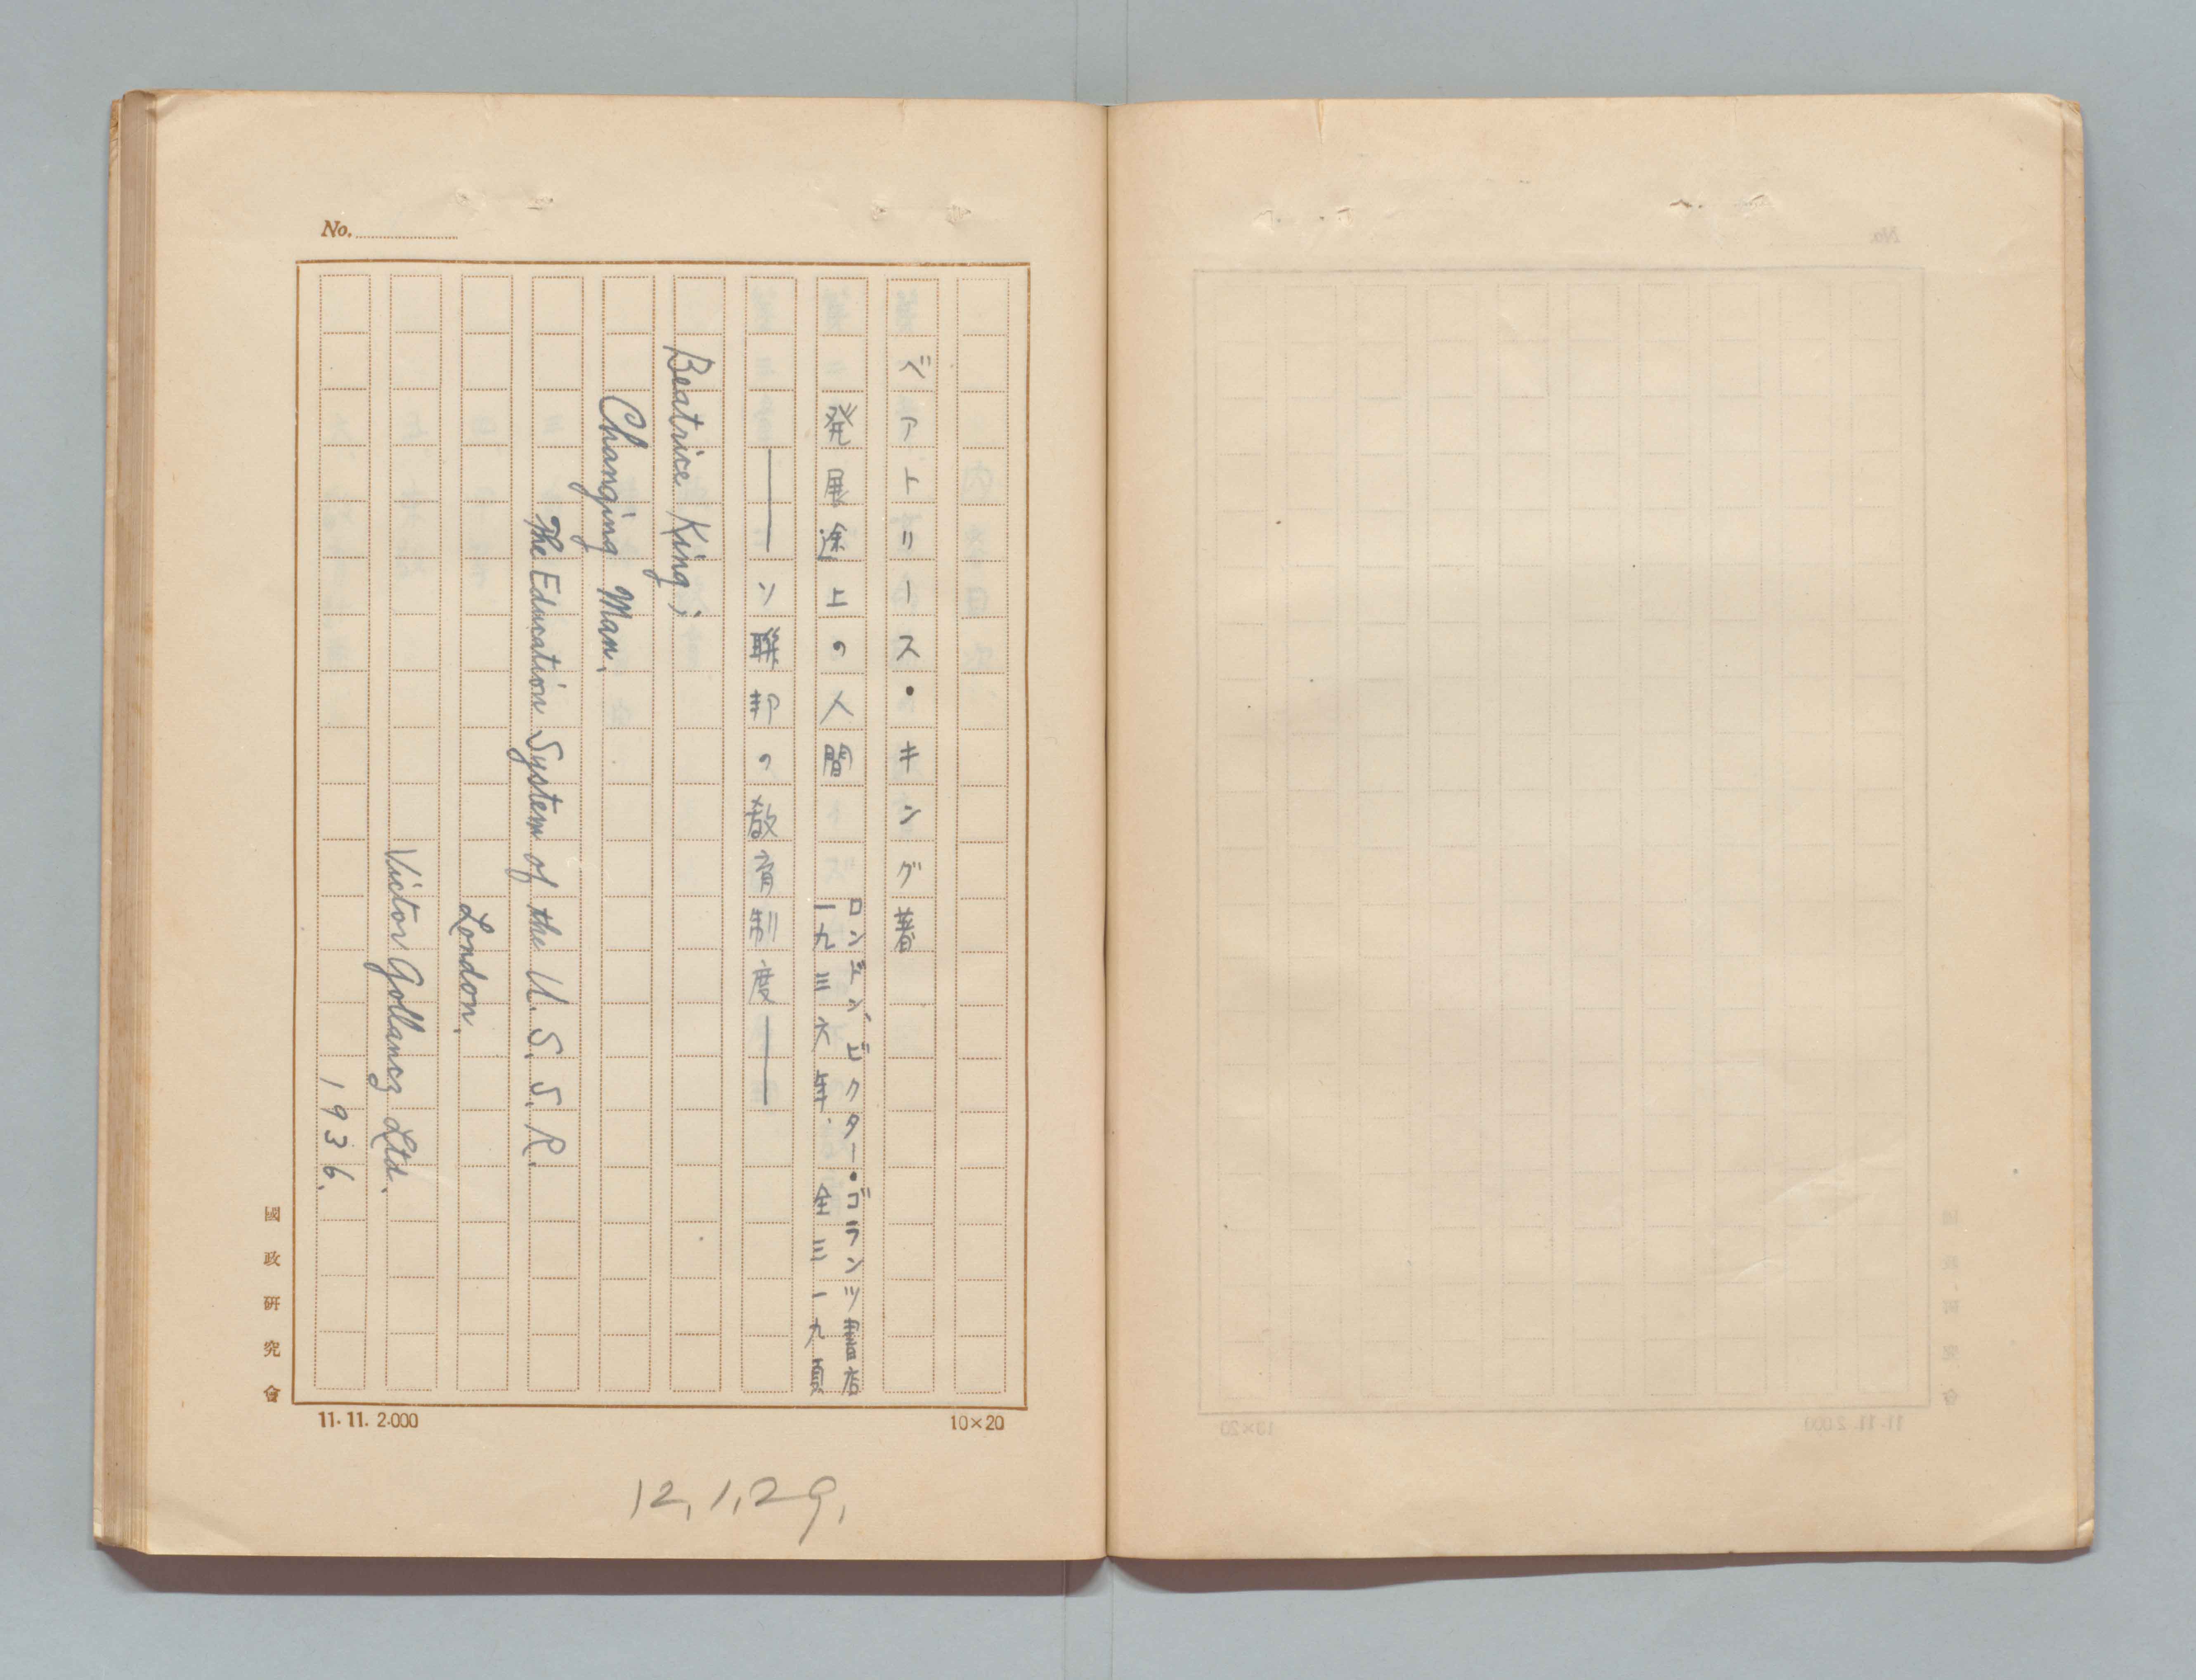 No.
ベアトリース・キング著
発展途上の人間
ロンドン、ビクター・ゴランツ書店
一九三六年、全三一九頁
――ソ聯邦の教育制度――
Beatrice King;
Changing Man.
The Education System of the U.S.S.R.
London.
Victor Gollancz Ltd.
1936.
國政研究會
11.11. 2.000
10×20
12,1,29,